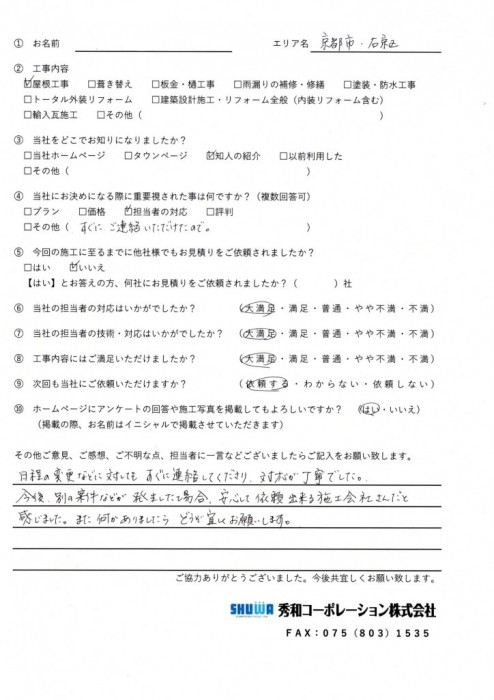 ① お名前 エリア名 京都市・右京区
② 工事内容
☑屋根工事 □葺き替え □板金・樋工事 □雨漏りの補修・修繕 □塗装・防水工事
□トータル外装リフォーム □建築設計施工・リフォーム全般（内装リフォーム含む）
□輸入瓦施工 □その他（ ）
③ 当社をどこでお知りになりましたか？
□当社ホームページ □タウンページ ☑知人の紹介 □以前利用した
□その他（ ）
④ 当社にお決めになる際に重要視された事は何ですか？（複数回答可）
□プラン □価格 ☑担当者の対応 □評判
□その他（ すぐに ご連絡いただけたので。 ）
⑤ 今回の施工に至るまでに他社様でもお見積りをご依頼されましたか？
□はい ☑いいえ
【はい】とお答えの方、何社にお見積りをご依頼されましたか？（ ）社
⑥ 当社の担当者の対応はいかがでしたか？ （大満足・満足・普通・やや不満・不満）
⑦ 当社の担当者の技術・対応はいかがでしたか？ （大満足・満足・普通・やや不満・不満）
⑧ 工事内容にはご満足いただけましたか？ （大満足・満足・普通・やや不満・不満）
⑨ 次回も当社にご依頼いただけますか？ （依頼する・わからない・依頼しない）
⑩ ホームページにアンケートの回答や施工写真を掲載してもよろしいですか？ （はい・いいえ）
（掲載の際、お名前はイニシャルで掲載させていただきます）
その他ご意見、ご感想、ご不明な点、担当者に一言などございましたらご記入をお願い致します。
日程の変更などに対しても すぐに連絡してくださり、対応が丁寧でした。
今後、別の案件などが 出ました場合、安心して依頼出来る施工会社さんだと
感じました。また何かありましたら どうぞ宜しくお願いします。
ご協力ありがとうございました。今後共宜しくお願い致します。
SHUWA 秀和コーポレーション株式会社
FAX：075（803）1535